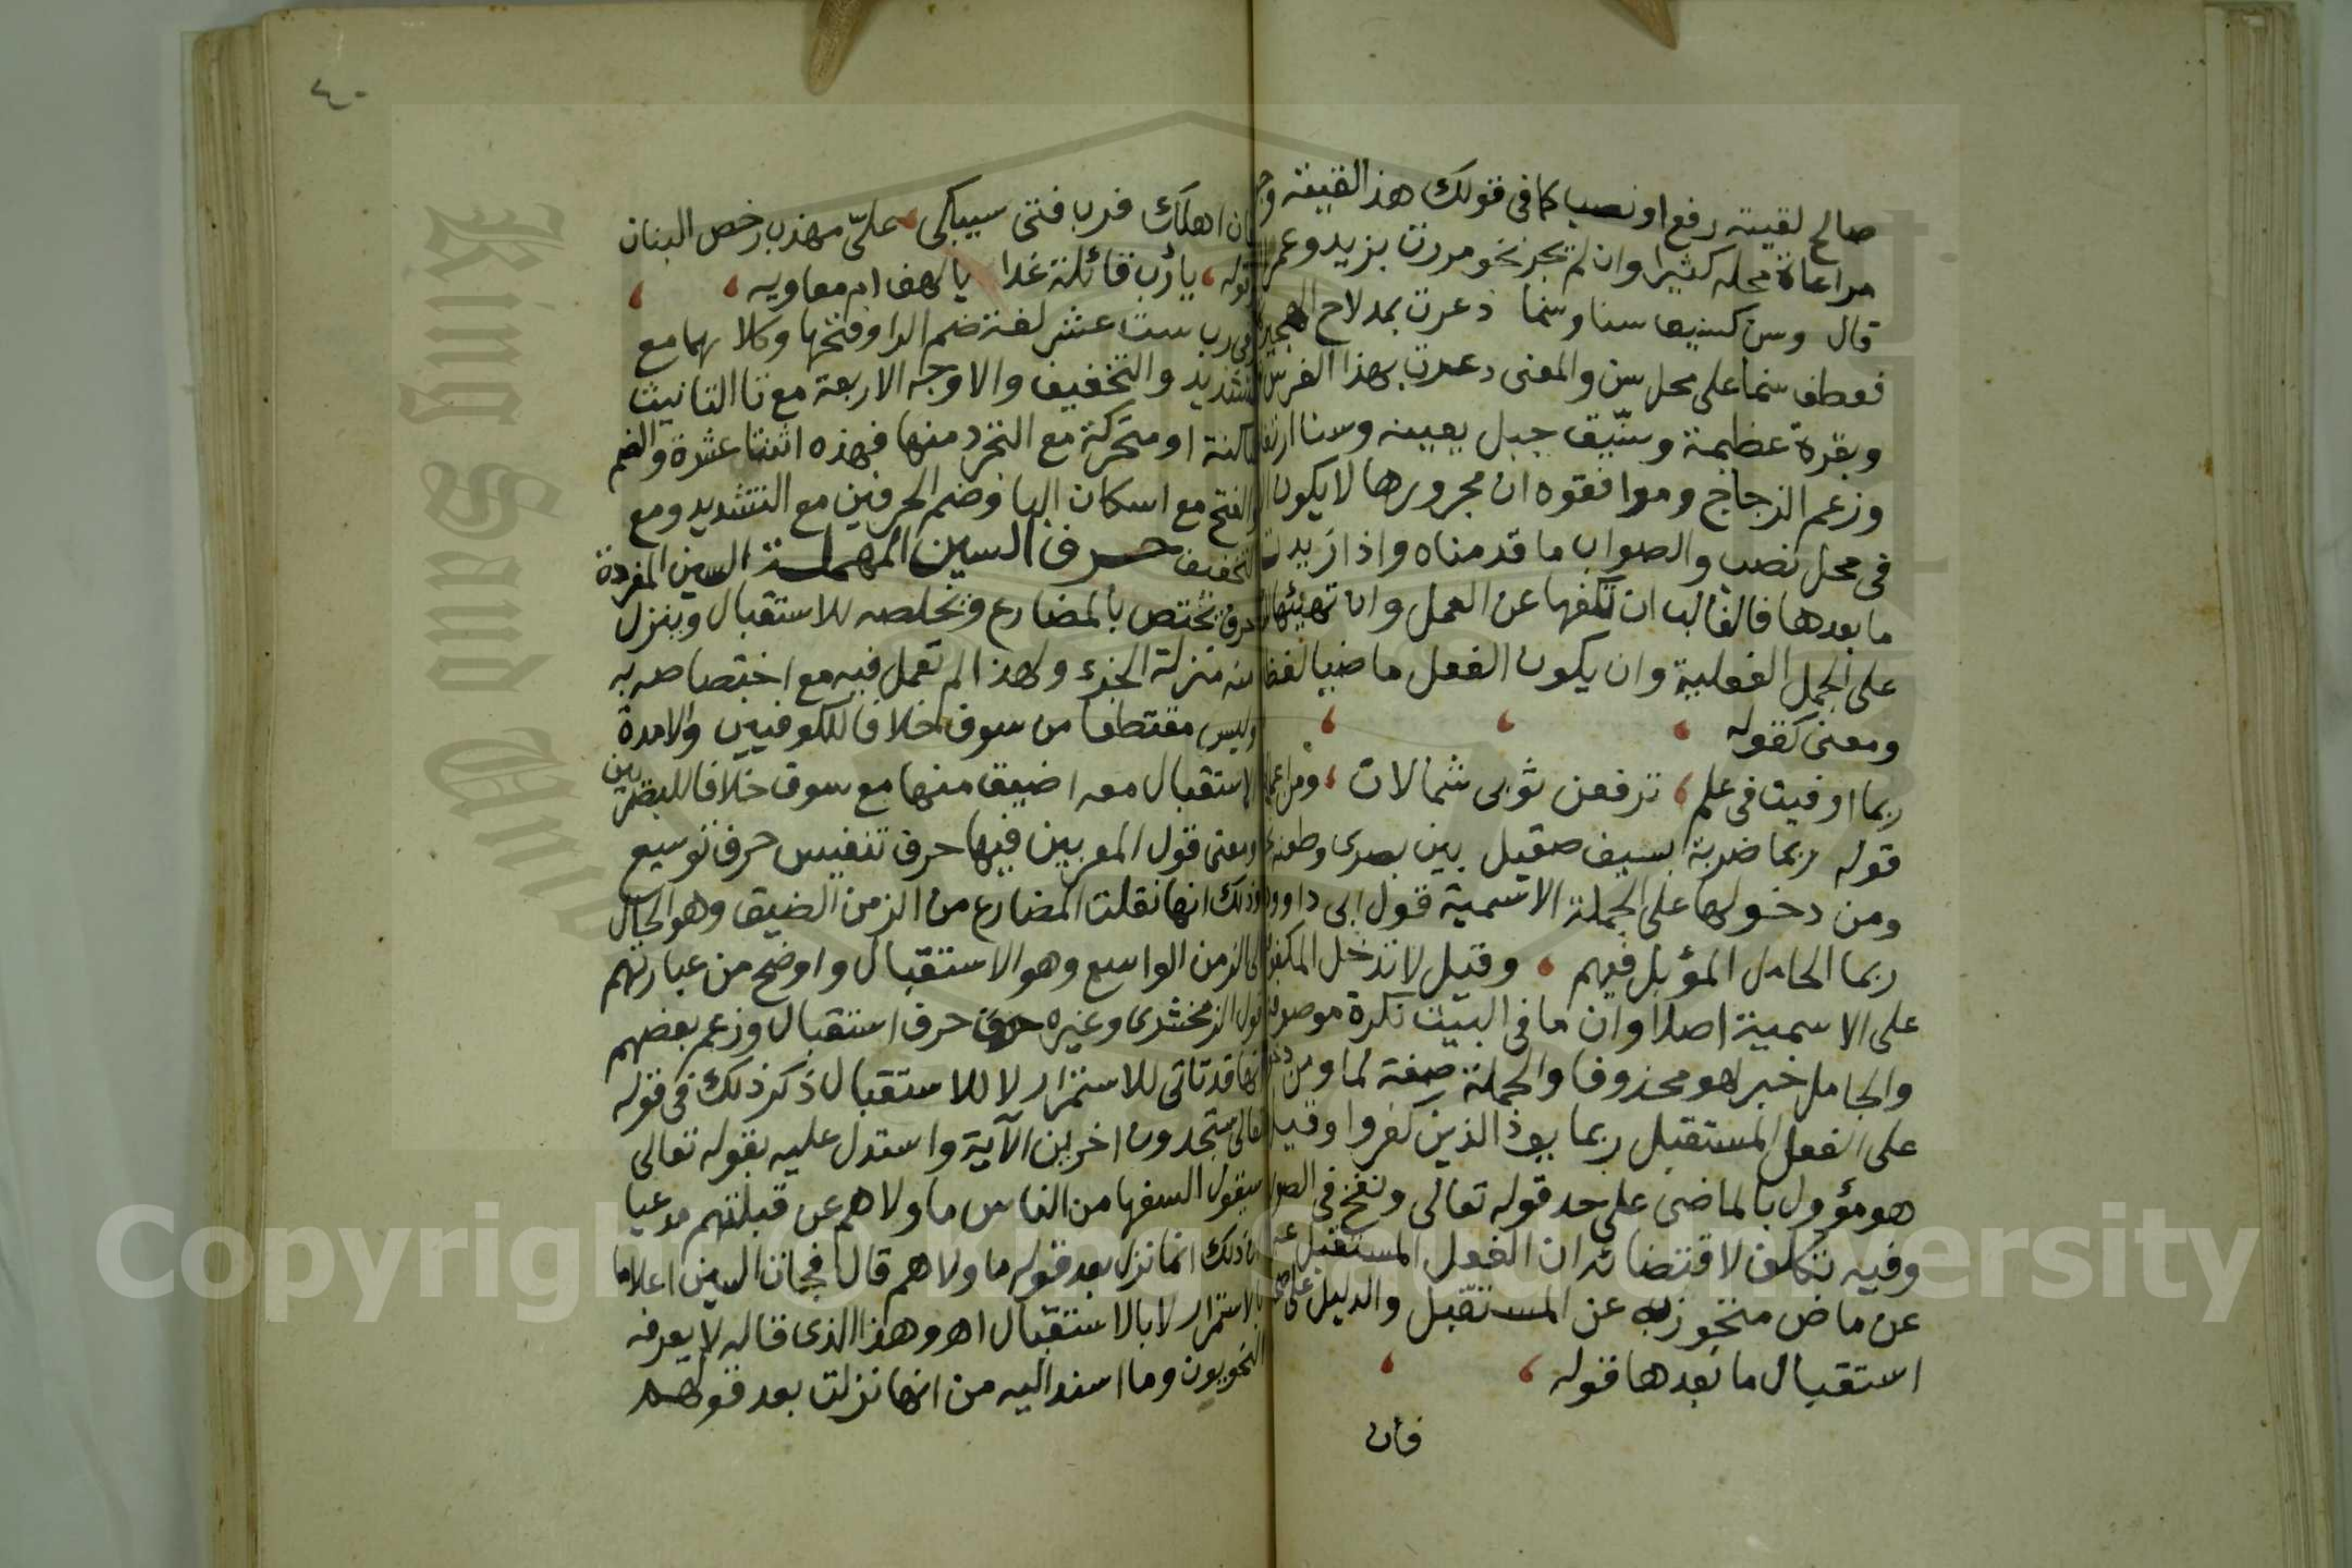 صالح لقيته رفع او نصب كما في قولك هذا لقيته
مراعاة محله كثيرا وان لم يجز نحو مررت بزيد وعمرا
قال وسن كسنيق سنا وسنما ذعرت بمدلاح الهجير
فعطف سنما على محل سن والمعنى ذعرت بهذا الفرس
وبقرة عظيمة وسنّيق جبل بعينه وسنا
وزعم الزجاج وموافقوه ان مجرورها لا يكون
في محل نصب والصواب ما قدمناه واذا زيدت
ما بعدها فالغالب ان تكفها عن العمل وان تهيئها
على الجمل الفعلية وان يكون الفعل ماضيا لفظا
ومعنى كقوله
ربما اوفيت في علم ، ترفعن ثوبي شمالات ،
قوله ربما ضربة بسيف صقيل بين بصرى وطعنة
ومن دخولها على الجملة الاسمية قول ابي داوود
ربما الحامل المؤبل فيهم ، وقيل لا تدخل
على الاسمية اصلا وان ما في البيت نكرة موصوفة
والجامل خبر لهو محذوفا والجملة صفة لما ومن
على الفعل المستقبل ربما يود الذين كفروا وقيل
هو مؤول بالماضي على حد قوله تعالى ونفخ في الصور
وفيه تكلف لاقتضائه ان الفعل المستقبل
عن ماض متجوز به عن المستقبل والدليل على
استقبال ما بعدها قوله
فان
٤٠
فان اهلك فرب فتى سيبكي ، عليّ مهذب رخص البنان
قوله ، يا رب قائلة غدا يا لهف ام معاويه ،
في رب ست عشر لغة ضم الرا وفتحها وكلاهما مع
التشديد والتخفيف والاوجه الاربعة مع تا التانيث
ساكنة او متحركة مع التجرد منها فهذه اثنتا عشرة والضم
والفتح مع اسكان البا وضم الحرفين مع التشديد ومع
التخفيف حرف السين المهملة السين المفردة
حرف يختص بالمضارع وتخلصه للاستقبال وينزل
منه منزلة الجزء ولهذا لم تعمل فيه مع اختصاصه به
وليس مقتطعا من سوف خلافا للكوفيين ولا مدة
الاستقبال معه اضيق منها مع سوف خلافا للبصريين
ومعنى قول المعربين فيها حرف تنفيس حرف توسيع
وذلك انها نقلت المضارع من الزمن الضيق وهو الحال
الى الزمن الواسع وهو الاستقبال واوضح من عبارتهم
قول الزمخشري وغيره حرف حرف استقبال وزعم بعضهم
انها قد تاتي للاستمرار لا للاستقبال ذكر ذلك في قوله
تعالى ستجدون اخرين الآية واستدل عليه بقوله تعالى
سيقول السفها من الناس ما ولاهم عن قبلتهم مدعيا
ان ذلك انما نزل بعد قوله ما ولاهم قال فجات السين اعلاما
بالاستمرار لا بالاستقبال اهـ وهذا الذي قاله لا يعرفه
النحويون وما اسند اليه من انها نزلت بعد قولهم
King Saud University
Copyright © King Saud University